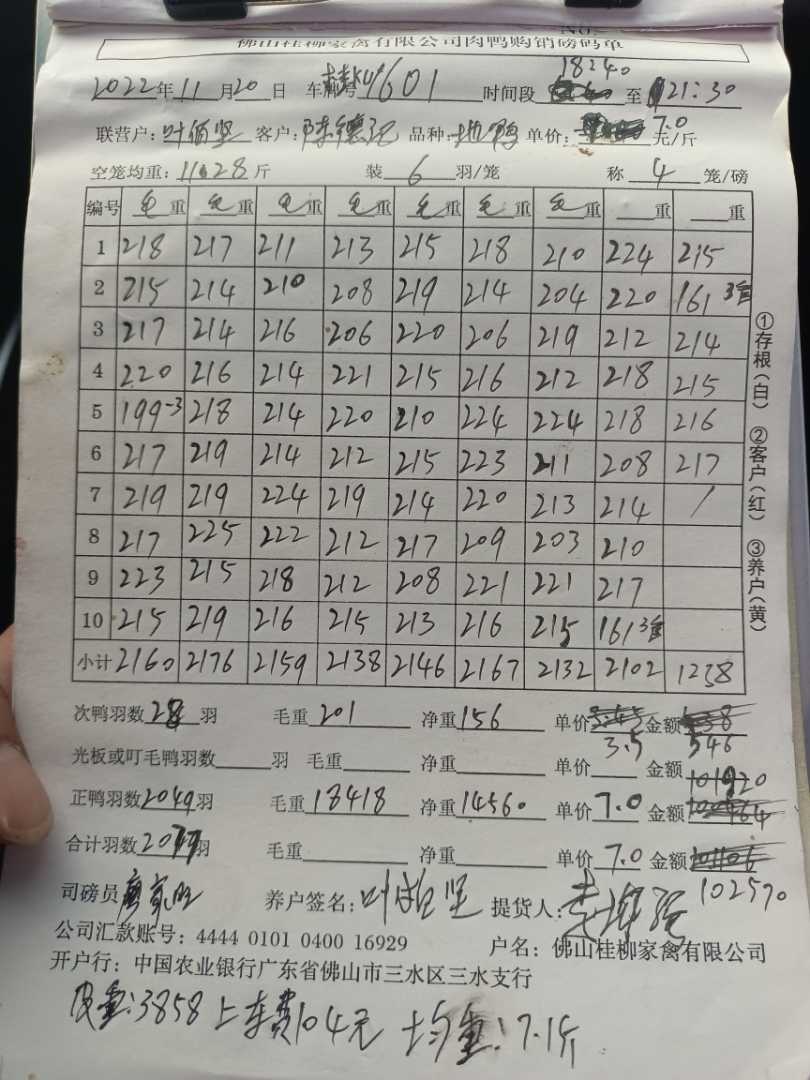 佛山桂柳家禽有限公司肉鸭购销磅码单
18:40
2022年11月20日 车牌号 601 时间段 至 21:30
联营户: 叶佰坚 客户: 品种: 单价: 7.0 元/斤
空笼均重: 11.28斤 装 6 羽/笼 称 4 笼/磅
编号 毛重 毛重 毛重 毛重 毛重 毛重 毛重 重 重
1 218 217 211 213 215 218 210 224 215
2 215 214 210 208 219 214 204 220 161 3笼
3 217 214 216 206 220 206 219 212 214
4 220 216 214 221 215 216 212 218 215
5 199-3 218 214 220 210 224 224 218 216
6 217 219 214 212 215 223 211 208 217
7 219 219 224 219 214 220 213 214 /
8 217 225 222 212 217 209 203 210
9 223 215 218 212 208 221 221 217
10 215 219 216 215 213 216 215 161 3笼
小计 2160 2176 2159 2138 2146 2167 2132 2102 1238
①存根(白) ②客户(红) ③养户(黄)
次鸭羽数 28 羽 毛重 201 净重 156 单价 金额
3.5 546
光板或叮毛鸭羽数 羽 毛重 净重 单价 金额
101920
正鸭羽数 2049 羽 毛重 18418 净重 14560 单价 7.0 金额
合计羽数 羽 毛重 净重 单价 7.0 金额
102570
司磅员 养户签名: 叶 坚 提货人:
公司汇款账号: 4444 0101 0400 16929 户名: 佛山桂柳家禽有限公司
开户行: 中国农业银行广东省佛山市三水区三水支行
皮重: 3858 上车费104元 均重: 7.1斤